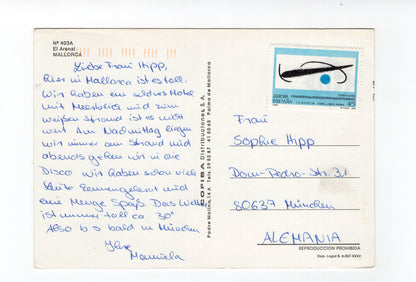 Nº 403A
El Arenal
MALLORCA
Liebe Frau Hipp,
hier in Mallorca ist es toll.
Wir haben ein schönes Hotel
mit Meerblick und zum
weißen Strand ist es nicht
weit. Am Nachmittag liegen
wir immer am Strand und
abends gehen wir in die
Disco. Wir haben schon viele
Leute kennengelernt und
eine Menge Spaß. Das Wetter
ist immer toll ca 30°
Also bis bald in München
Ihre
Manuela
COFIBA Distribuciones, S. A.
Palma de Mallorca
EUROPA
ESPAÑA
45
Frau
Sophie Hipp
Dom-Pedro-Str. 31
80637 München
ALEMANIA
REPRODUCCION PROHIBIDA